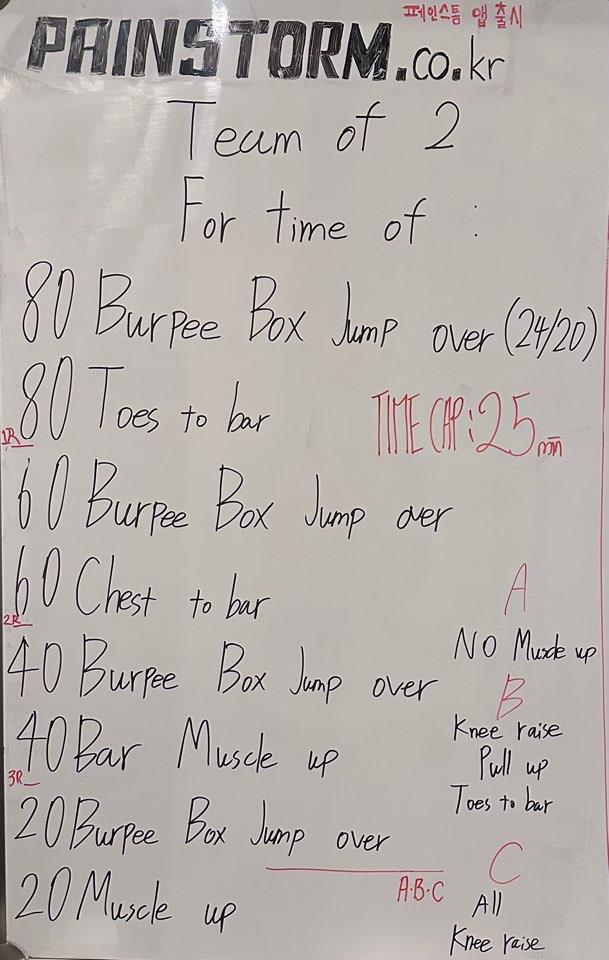 페인스톰 앱 출시
PAINSTORM.co.kr
Team of 2
For time of :
80 Burpee Box Jump over (24/20)
80 Toes to bar
1R
TIME CAP: 25 min
60 Burpee Box Jump over
60 Chest to bar
2R
40 Burpee Box Jump over
40 Bar Muscle up
3R
20 Burpee Box Jump over
A·B·C
20 Muscle up
A
NO Muscle up
B
Knee raise
Pull up
Toes to bar
C
All
Knee raise